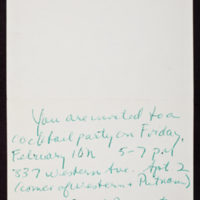 You are invited to a
cocktail party on Friday,
February 16th 5-7 p.m.
837 Western Ave. Apt. 2
(corner of Western + Putnam)